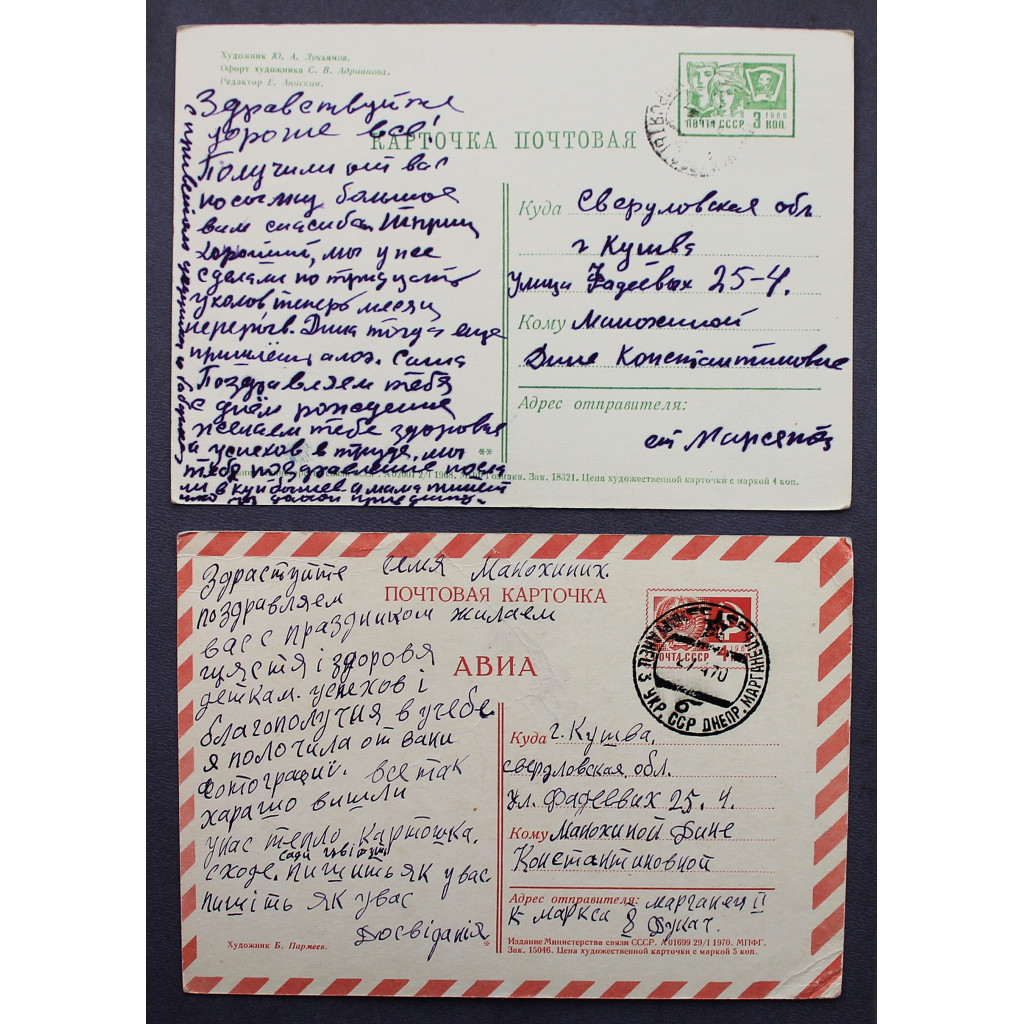 Художник Ю. А. Лукьянов.
Офорт художника С. В. Адрианова.
Редактор Е. Анискин.
Здравствуйте
дорогие все!
Получили от вас
посылку большое
вам спасибо. Шприц
хороший, мы уже
сделали по тридцать
уколов теперь месяц
перерыв. Дина тогда еще
пришлёш алоэ. Саша
Поздравляем тебя
с днём рождения
желаем тебе здоровья
и успехов в труде, мы
тебя поздравление посла
ли в куйбышев а мама пишет
что ты домой
с приветом
КАРТОЧКА ПОЧТОВАЯ
ПОЧТА СССР 3 КОП. 1966
Куда Свердловская обл
г Кушва
Улица Фадеевых 25-4.
Кому Манохиной
Дине Константиновне
Адрес отправителя:
от
**
А02001 2/I 1968. Гознака. Зак. 18321. Цена художественной карточки с маркой 4 коп.
Здраствуйте семя Манохиних.
поздравляем
вас с праздником жилаем
щястя і здоровя
деткам. успехов і
благополучия в учебе.
я полочила от вани
фотограції. все так
харашо вишли
унас тепло. картошка.
сади цвітуть
сходе. пишить як у вас.
пишіть як у вас
Досвіданія
ПОЧТОВАЯ КАРТОЧКА
АВИА
ПОЧТА СССР
МАРГАНЕЦ 3 УКР. ССР ДНЕПР. МАРГАНЕЦ
Куда г. Кушва.
свердловская. обл.
ул. Фадеевих 25. 4.
Кому Манохиной Дине
Константиновной
Адрес отправителя: марганец II
К Маркса 8 Дукач.
Художник Б. Пармеев.
*
Издание Министерства связи СССР. А 01699 29/I 1970. МПФГ.
Зак. 15046. Цена художественной карточки с маркой 5 коп.